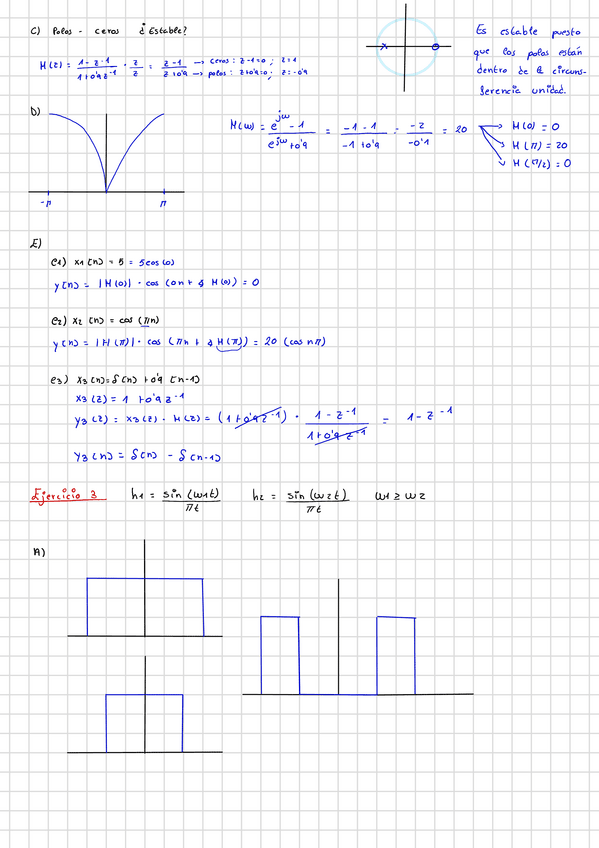 C) Polos - ceros ¿Estable?
H(z) = 1 - z-1 / 1+0'9 z^-1 · z/z = z-1 / z+0'9 → ceros: z-1=0 ; z=1
→ polos: z+0'9=0 ; z=-0'9
Es estable puesto
que los polos están
dentro de la circuns-
ferencia unidad.
D)
H(ω) = e^jω - 1 / e^jω + 0'9 = -1 - 1 / -1 + 0'9 = -2 / -0'1 = 20 → H(0) = 0
→ H(π) = 20
→ H(π/2) = 0
-π π
E)
e1) x1[n] = 5 = 5cos(0)
y[n] = |H(0)| · cos(0n + ∡ H(0)) = 0
e2) x2[n] = cos(πn)
y[n] = |H(π)| · cos(πn + ∡ H(π)) = 20 (cos nπ)
e3) x3[n] = δ[n] + 0'9 [n-1]
x3(z) = 1 + 0'9 z^-1
Y3(z) = x3(z) · H(z) = (1+0'9 z^-1) · 1 - z^-1 / 1+0'9 z^-1 = 1 - z^-1
Y3[n] = δ[n] - δ[n-1]
Ejercicio 3 h1 = sin(ω1t) / πt h2 = sin(ω2t) / πt ω1 ≥ ω2
A)